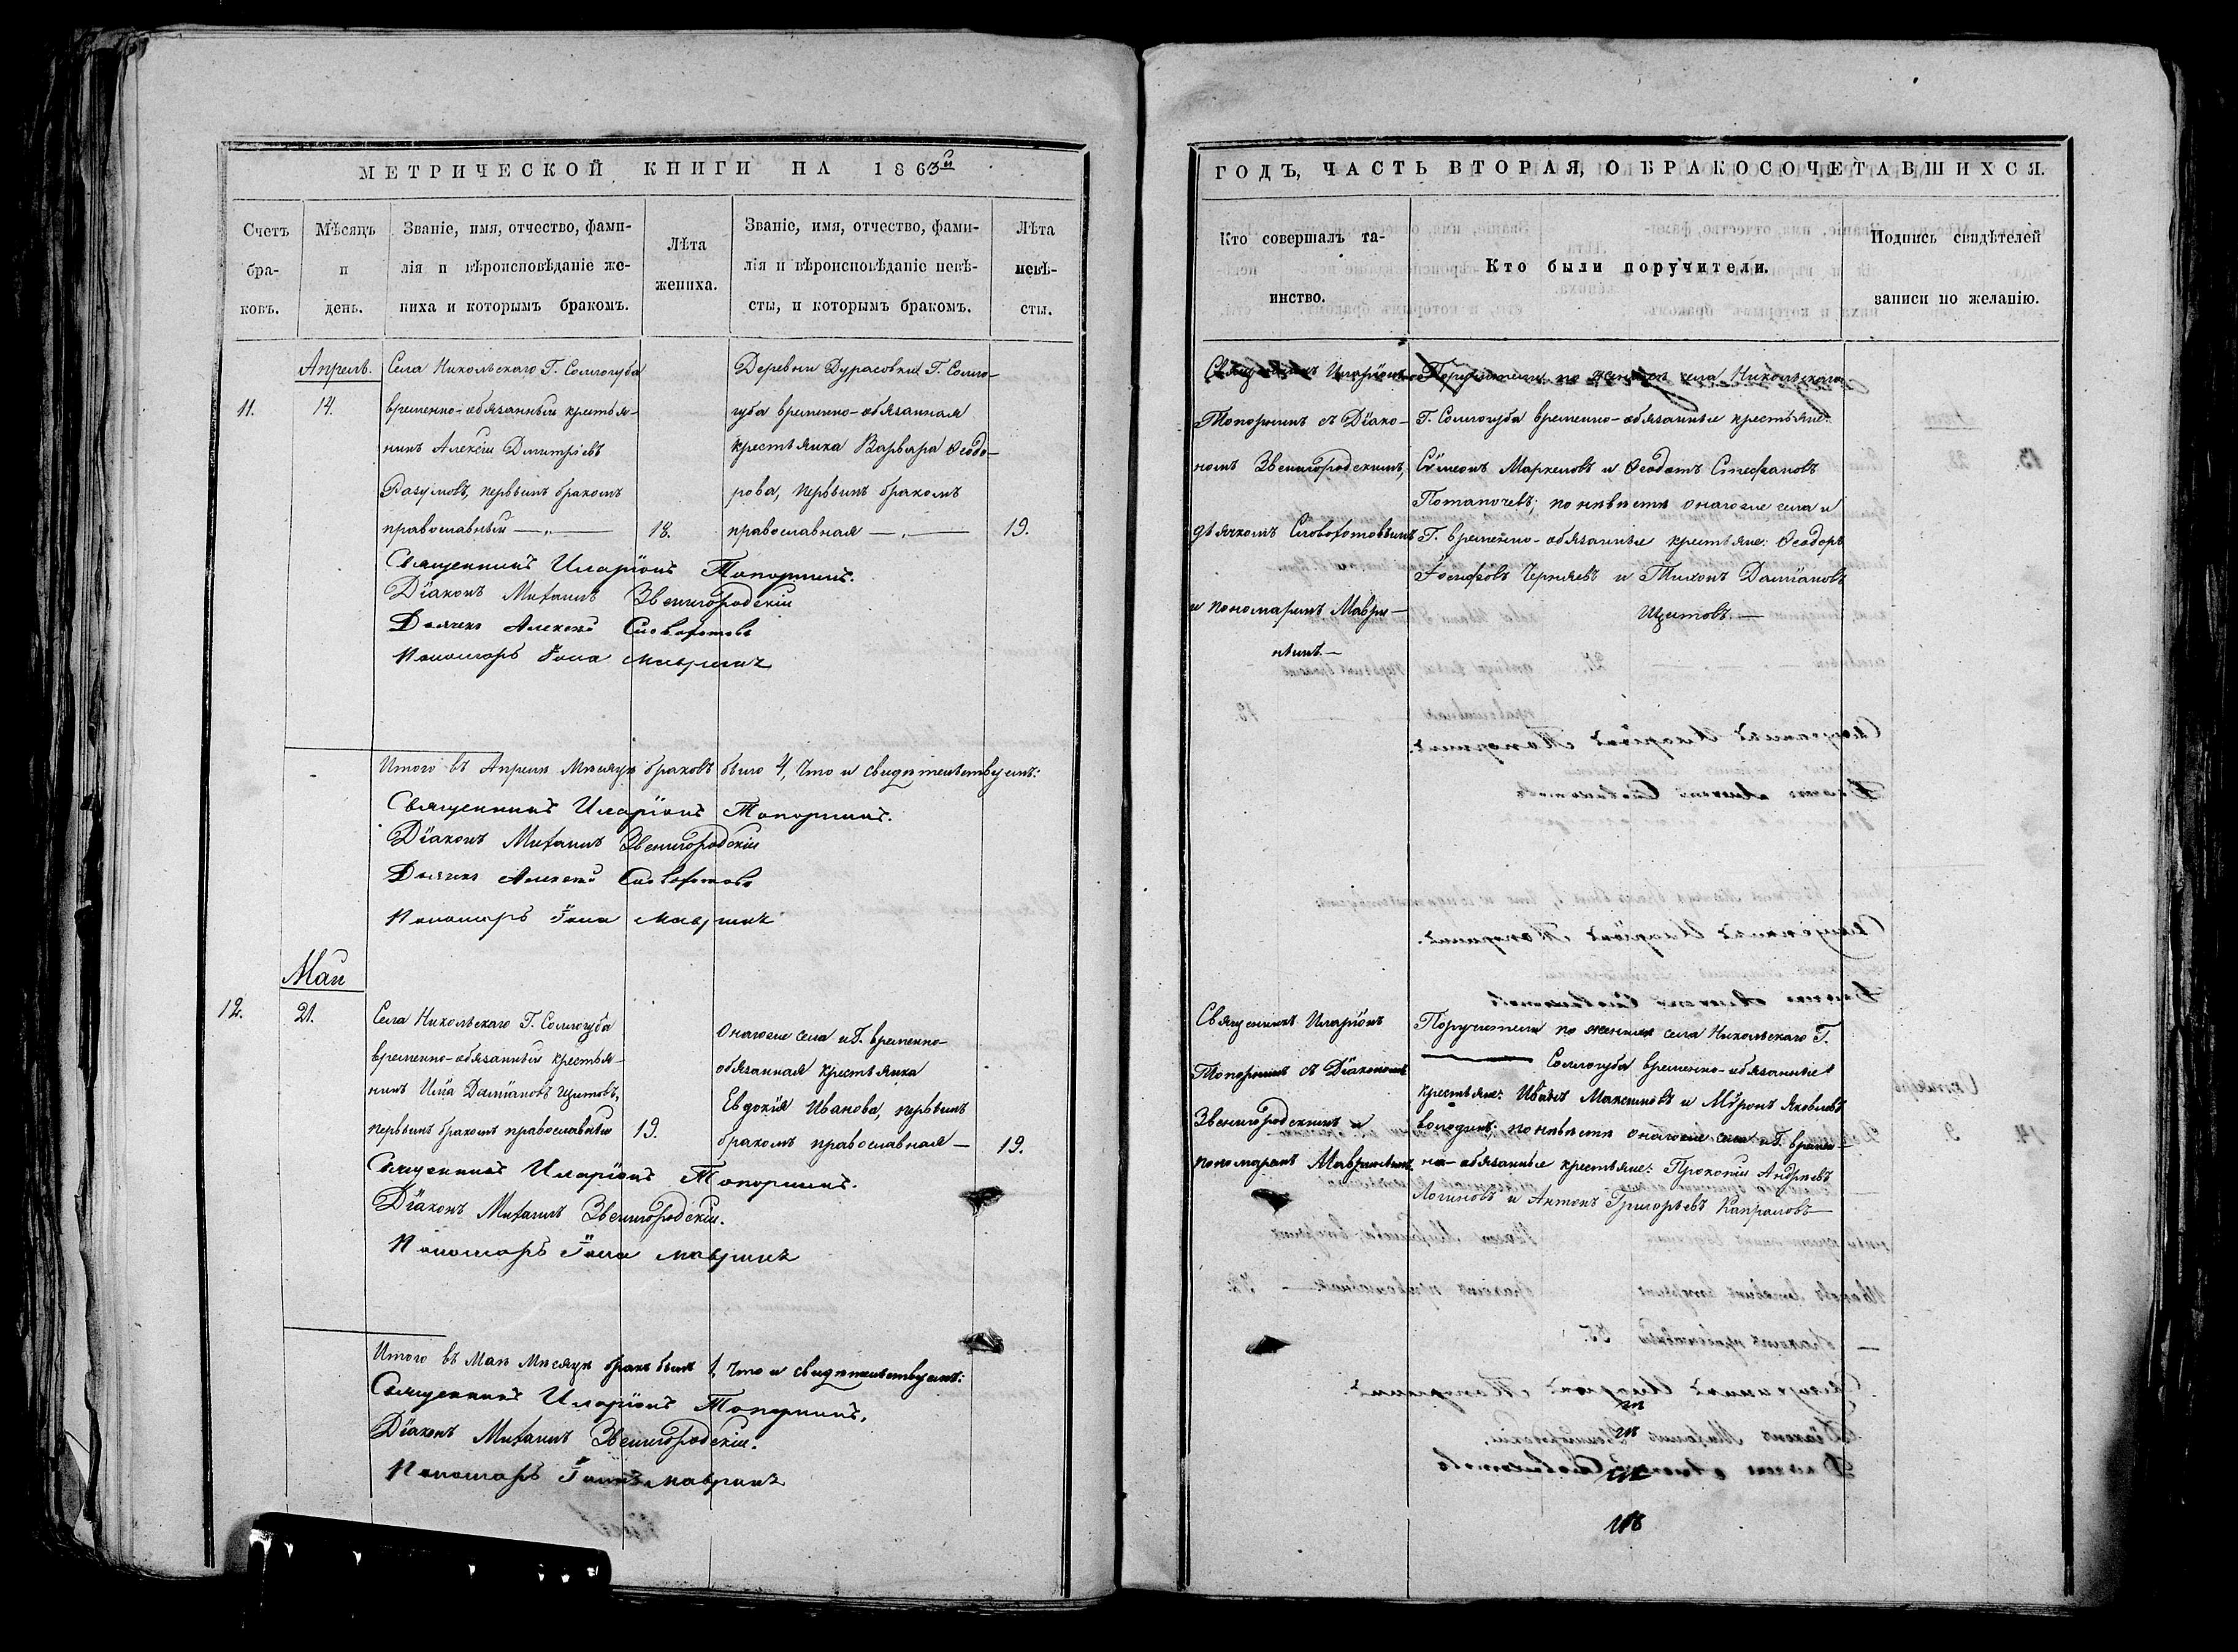 МЕТРИЧЕСКОЙ КНИГИ НА 1863й
Счетъ бра- ковъ.
Мѣсяцъ и день.
Званіе, имя, отчество, фами-
лія и вѣроисповѣданіе же-
ниха и которымъ бракомъ.
Лѣта жениха.
Званіе, имя, отчество, фами-
лія и вѣроисповѣданіе невѣ-
сты, и которымъ бракомъ.
Лѣта невѣ- сты.
11.
Апрель.
14.
Села Никольскаго Г. Соллогуба
временно-обязанный крестья-
нинъ Алексій Димитріевъ
Разумовъ, первымъ бракомъ
православный — „ —
18.
Деревни Дурасовки Г. Солло-
губа временно-обязанная
крестьянка Варвара Ѳеодо-
рова, первымъ бракомъ
православная — „ —
19.
Священникъ Иларіонъ Топорнинъ.
Діаконъ Михаилъ Звенигородскій
Дьячекъ Алексей Словохотовъ
Пономарь Іона Мавринъ
Итого въ Апреле Месяце браковъ было 4, что и свидетельствуемъ:
Священникъ Иларіонъ Топорнинъ.
Діаконъ Михаилъ Звенигородскій
Дьячекъ Алексей Словохотовъ
Пономарь Іона Мавринъ
12.
Маи
21.
Села Никольскаго Г. Соллогуба
временно-обязанный крестья-
нинъ Илія Даміановъ Щитовъ,
первымъ бракомъ православный
19.
Онагоже села и Г. временно-
обязанная крестьянка
Евдокія Иванова, первымъ
бракомъ православная —
19.
Священникъ Иларіонъ Топорнинъ.
Діаконъ Михаилъ Звенигородскій.
Пономарь Іона Мавринъ
Итого въ Мае Месяце бракъ былъ 1, что и свидетельствуемъ:
Священникъ Иларіонъ Топорнинъ.
Діаконъ Михаилъ Звенигородскій.
Пономарь Іона Мавринъ
ГОДЪ, ЧАСТЬ ВТОРАЯ, О БРАКОСОЧЕТАВШИХСЯ.
Кто совершалъ та-
инство.
Кто были поручители.
Подпись свидѣтелей
записи по желанію.
Священникъ Иларіонъ
Топорнинъ съ Діако-
номъ Звенигородскимъ,
дьячкомъ Словохотовымъ
и пономаремъ Маври-
нымъ.—
Поручители по женихе села Никольскаго
Г. Соллогуба временно-обязанные крестьяне:
Сѵмеонъ Маркеловъ и Ѳеодотъ Стефановъ
Потапочевъ; по невесте онагоже села и
Г. временно-обязанные крестьяне: Ѳеодоръ
Іосифовъ Черняевъ и Тихонъ Даміановъ
Щитовъ.—
Священникъ Иларіонъ
Топорнинъ съ Діакономъ
Звенигородскимъ и
пономаремъ Мавринымъ
Поручители по женихе села Никольскаго Г.
Соллогуба временно-обязанные
крестьяне: Иванъ Максимовъ и Мѵронъ Яковлевъ
Володинъ; по невесте онагоже села и Г. времен-
но-обязанные крестьяне: Прокопій Андреевъ
Логиновъ и Антонъ Григорьевъ Капраловъ—